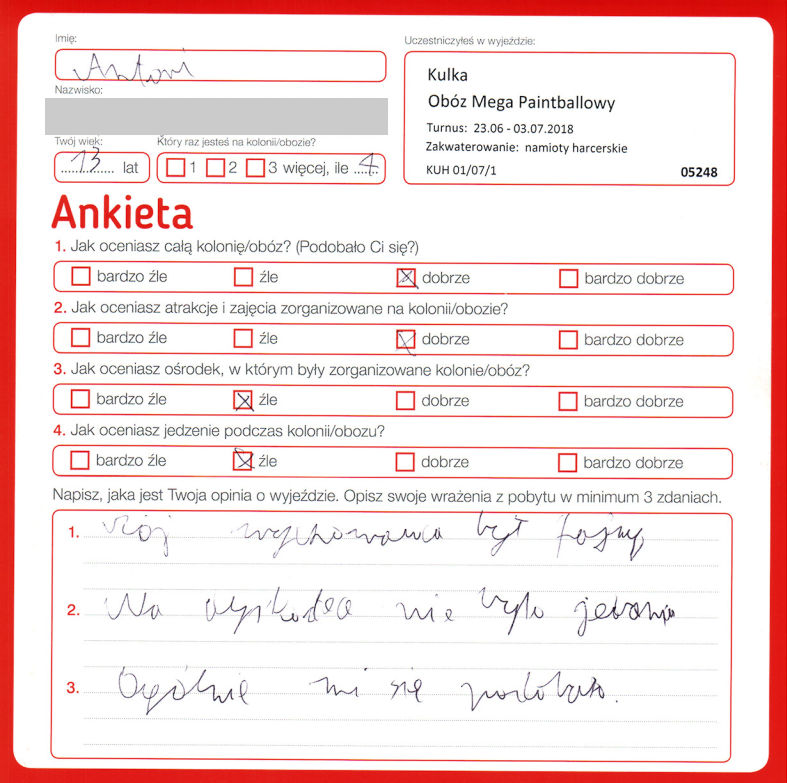 Imię:
Antoni
Nazwisko:
Twój wiek:
13 lat
Który raz jesteś na kolonii/obozie?
1 2 3 więcej, ile 4
Uczestniczyłeś w wyjeździe:
Kulka
Obóz Mega Paintballowy
Turnus: 23.06 - 03.07.2018
Zakwaterowanie: namioty harcerskie
KUH 01/07/1 05248
Ankieta
1. Jak oceniasz całą kolonię/obóz? (Podobało Ci się?)
bardzo źle źle dobrze bardzo dobrze
2. Jak oceniasz atrakcje i zajęcia zorganizowane na kolonii/obozie?
bardzo źle źle dobrze bardzo dobrze
3. Jak oceniasz ośrodek, w którym były zorganizowane kolonie/obóz?
bardzo źle źle dobrze bardzo dobrze
4. Jak oceniasz jedzenie podczas kolonii/obozu?
bardzo źle źle dobrze bardzo dobrze
Napisz, jaka jest Twoja opinia o wyjeździe. Opisz swoje wrażenia z pobytu w minimum 3 zdaniach.
1. Mój wychowawca był fajny
2. Na nie było
3. Ogólnie mi się podobało.